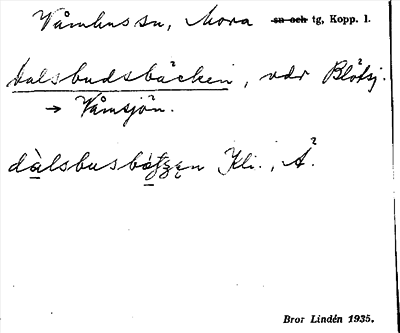 Våmhus sn, Mora sn och tg, Kopp. l.
Dalsbudsbäcken, vdr Blötsj.
→ Våmsjön.
dàlsbusbätzęn Kli., Å.
Bror Lindén 1935.